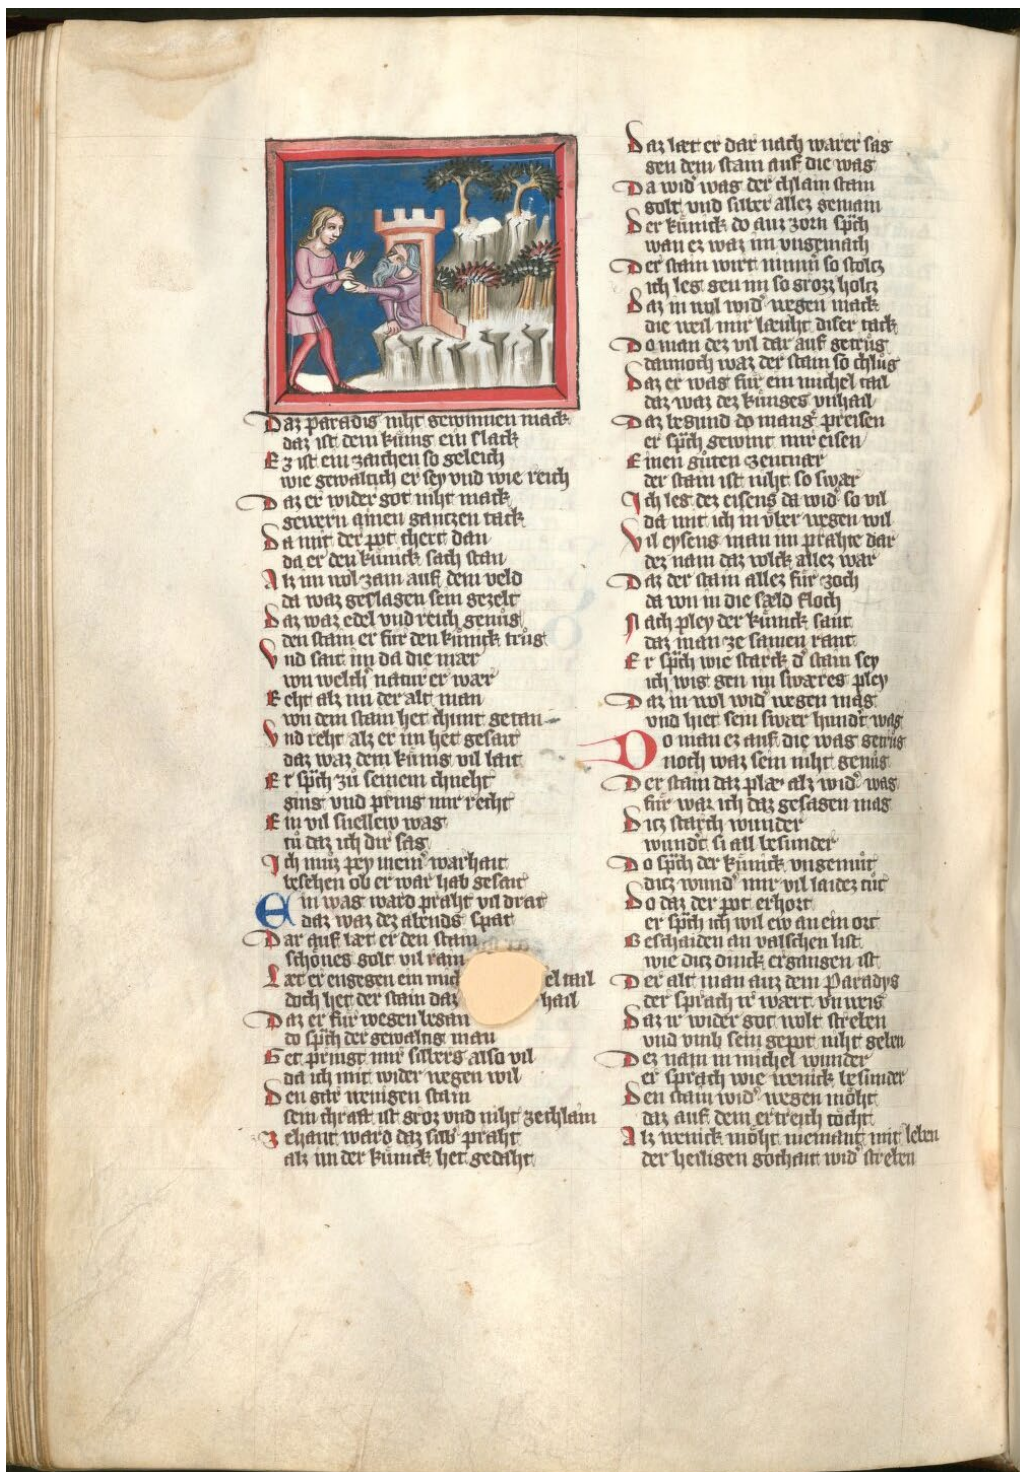 Daz paradis niht gewinnen mack
daz ist dem kunig ein slack
Ez ist ein zaichen so geleich
wie gewaltich er sey vnd wie reich
Daz er wider got niht mack
gewern ainen gantzen tack
Da mit der pot chert dan
da er den kunick sach stan
Alz im wol zam auf dem veld
da waz geslagen sein gezelt
Daz waz edel vnd reich genug
den stain er für den kunick trug
Vnd sait im da die mær
von welcher natur er wær
Reht alz im der alt man
von dem stain het chunt getan
Vnd reht alz er im het gesait
daz waz dem kunig vil lait
Er sprch zu seinem chneht
ging vnd pring mir recht
Ein vil snellew wag
tu daz ich dir sag
Ich muz pey meiner warhait
besehen ob er war hab gesait
Ein wag ward praht vil drat
daz waz dez abends spat
Dar auf læt er den stain
schönes golt vil rain
Læt er engegen ein michel tail
doch het der stain daz hail
Daz er für wegen began
do sprch der gewaltig man
Get pringt mir silbers also vil
da ich mit wider wegen wil
Den gar wenigen stain
sein chraft ist groz vnd niht ze chlain
Zehant ward daz silber praht
alz im der kunick het gedaht
Daz læt er dar nach warer sag
gen dem stain auf die wag
Da wider wag der chlain stain
golt vnd silber allez gemain
Der kunick do auz zorn sprch
wan ez waz im vngemach
Der stain wirt nimmer so stoltz
ich leg gen im so grozz holtz
Daz in wol wider wegen mack
die weil mir læuht diser tack
Do man dez vil dar auf getrug
dannoch waz der stain so chlug
Daz er wag für ein michel tail
daz waz dez kunges vnhail
Daz begund do manger preisen
er sprch gewint mir eisen
Einen guten zentnær
der stain ist niht so swær
Ich leg dez eisens da wider so vil
da mit ich in vber wegen wil
Vil eysens man im prahte dar
dez nam daz volck allez war
Daz der stain allez für zoch
da von in die sæld floch
Nach pley der kunick sant
daz man ze samen vant
Er sprch wie starck der stain sey
ich wig gen im swæres pley
Daz in wol wider wegen mag
vnd hiet sein swær hundert wag
Do man ez auf die wag getrug
noch waz sein niht genug
Der stain daz pley alz wider wag
für war ich daz gesagen mag
Ditz starch wunder
wundert si all besunder
Do sprch der kunick vngemut
ditz wunder mir vil laidez tut
Do daz der pot erhort
er sprch ich wil ew an ein ort
Beschaiden an valschen list
wie ditz dinck ergangen ist
Der alt man auz dem Paradys
der sprach ir wært vnweis
Daz ir wider got wolt streben
vnd vmb sein gepot niht geben
Dez nam in michel wunder
er sprach wie wenick besunder
Den stain wider wegen möht
daz auf dem ertreich töcht
Alz wenick möht niemant mit leben
der heiligen gothait wider streben